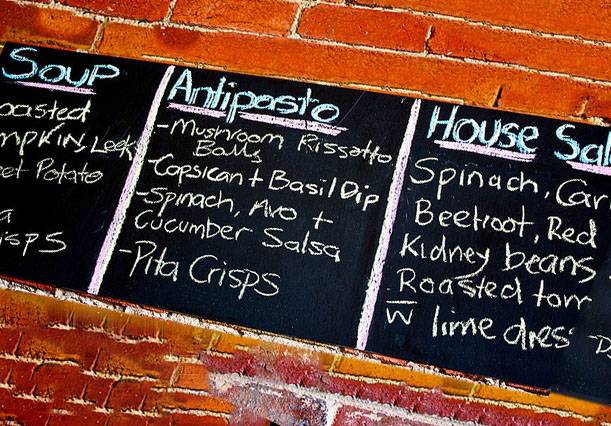 Soup
oasted
mpkin, Leek
eet Potato
a
isps
Antipasto
-Mushroom Rissotto
Balls
-Capsican + Basil Dip
-Spinach, Avo +
Cucumber Salsa
-Pita Crisps
House Sal
Spinach, Car
Beetroot, Red
Kidney beans
Roasted tom
w lime dres